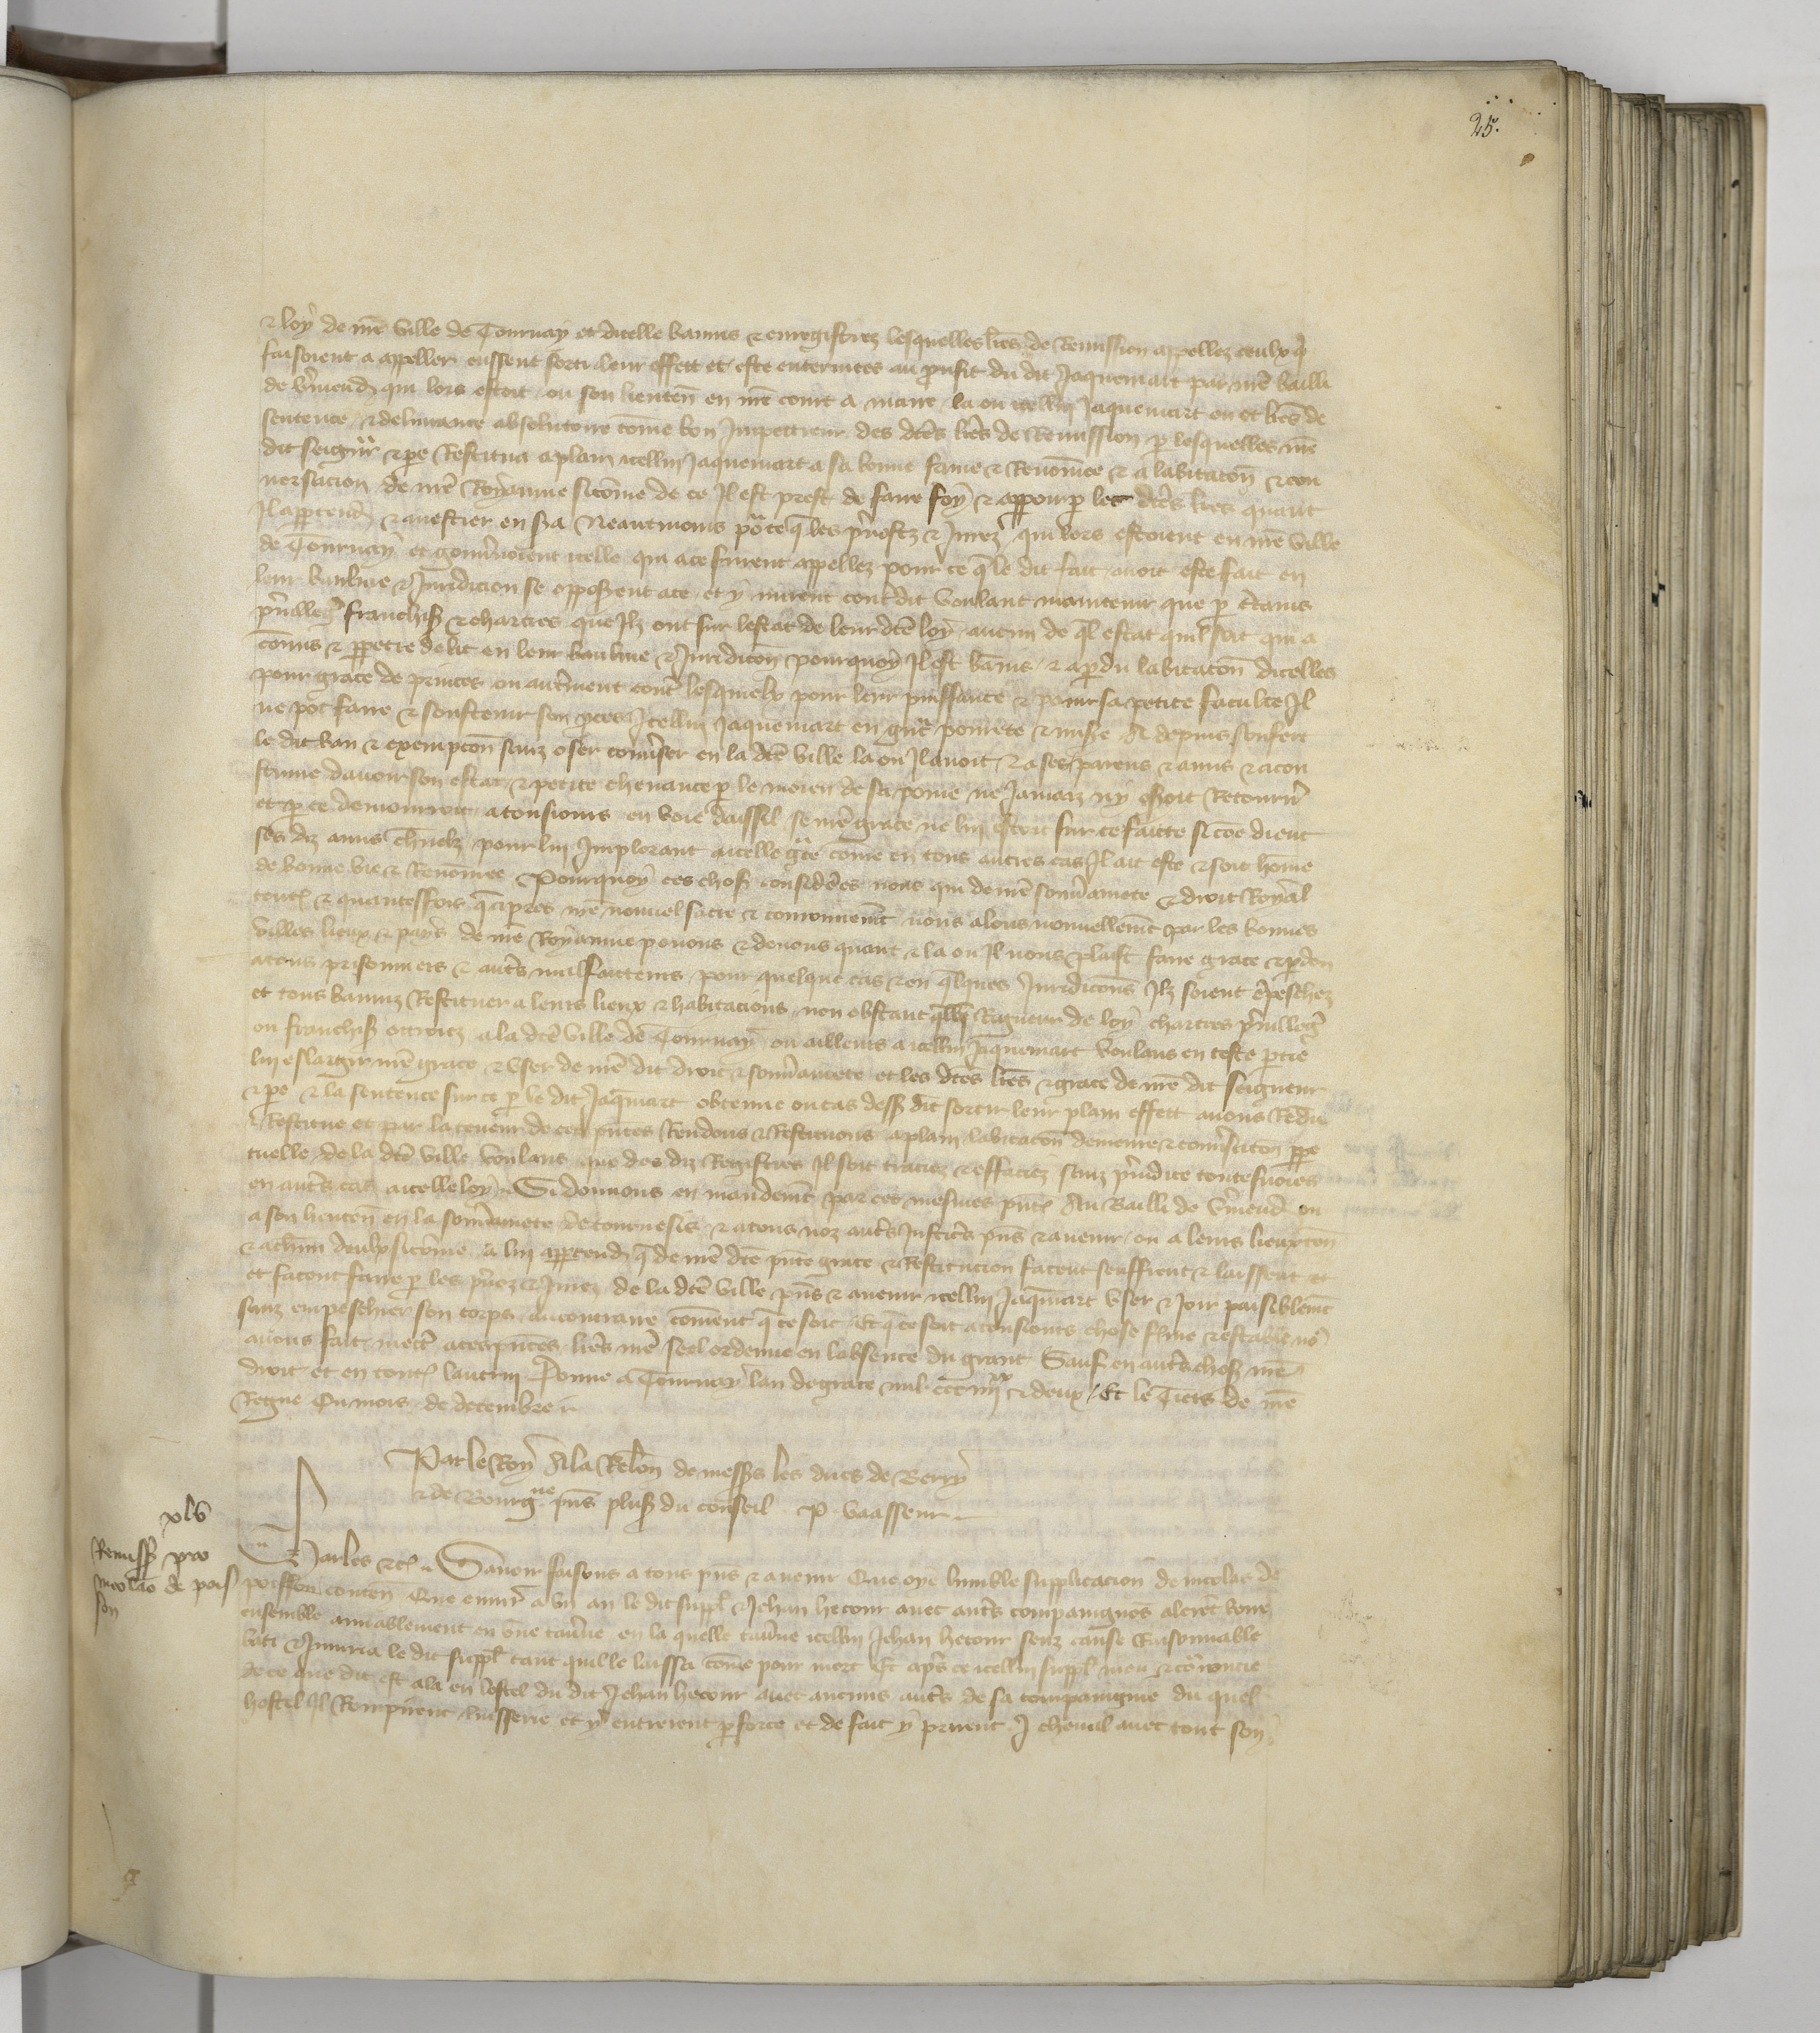 25.
& loy de nre ville de Tournay et dicelle bannis & enregistrez lesquelles lres de Remission appellez ceulx q
faisoient a appeller eussent sorti leur effect et este enterinees au prousit du dit Jaquemart par nre bailli
de vmend qui lors estoit ou son lieuten en nre court a maire la ou icellui Jaquemart en et lres de
sentence & delivrance absolutoire come bon Impetreur des dces lres de Remission p lesquelles nre
dit seigneur & pe Restitua a plain icellui Jaquemart a sa bonne fame & Renomee & a labitacon & con
versacion de nre Royaume sicome de ce Il est prest de faire foy & apparoir p les dces lres quant
Il appartendra & mestier en sera Neantmoins pource q les prevostz & Jurez qui lors estoient en nre ville
de Tournay et gouvnoient icelle qui a ce furent appellez pour ce q le dit fait avoit este fait en
leur banlieue & Juridicion se opposerent a ce et y mirent contdit voulant maintenir que p ctains
pvilleges franchises & chartres que Ilz ont sur lestat de leur dce loy aucun de ql estat quil soit qui a
comis & ppetre delit en leur banlieue & Juridicon pourquoy Il est banis & a pdu labitacon dicelles
pour grace de princes ou autrement cont lesquielx pour leur puissance & pour sa petite faculte Il
ne pot faire & soustenir son pces Icellui Jaquemart en gnt povrete & misere A depuis souffert
le dit ban & exempcon sanz oser convser en la dce ville la ou Il avoit & a ses parens & amis & acou
stume davoir son estat & petite chevance p le moien de sa peine ne Jamaiz ny oseroit Retourner
et p ce demourroit a tousiours en voie dexsil se nre grace ne lui estoit sur ce faitte sicoe dient
ses diz amis chnelz pour lui Implorant a icelle gce come en tous autres cas Il ait este & soit home
de bonne vie & Renommee Pourquoy ces choses considerees nous qui de nre souvainete & droit Royal
toutes & quantesfois q apres nre nouvel sacre & couronnement nous alons nouvellement par les bonnes
villes lieux & pays de nre Royaume povons & devons quant & la ou Il nous plaist faire grace & pdon
a tous prisonniers & auts malfaitteurs pour quelque cas & en qlques Juridicons Ilz soient epeschez
et tous banniz Restituer a leurs lieux & habitacions non obstant qlq Rigueur de loy chartres pvilleges
ou franchises ottroiez a la dce ville de Tournay ou ailleurs a icellui Jaquemart voulans en ceste ptie
lui eslargir nre grace & user de nre dit droit & souvainete et les dces lres & grace de nre dit seigneur
& pe & la sentence sur ce p le dit Jaqmart obtenue ou cas dess dit sortir leur plain effett avons Redu
& Restitue et par la teneur de ces pntes Rendons & Restituons a plain labitacon demeure & convsacon ppe
tuelle de la dce ville voulans que des diz Registres Il soit traciez & effaciez sanz pjudice toutesvoies
en auts cas a icelle loy Si donnons en mandement par ces mesmes pntes Au Bailli de vmend ou
a son lieuten en la souvainete de tournesis & a tous noz auts Justiciers pns & avenir ou a leurs lieuxten
& a chun deulx sicome a lui appartendra q de nre dce pnte grace & Restitucion facent seuffrent & laissent et
et facent faire p les pvez & Jurez de la dce ville pns & avenir icellui Jaqmart user & Joir paisiblement
sanz empeschier son corps au contraire coment q ce soit Et q ce soit a tousiours chose ferme & estable no
avons fait mectre a ces pntes lres nre seel ordenne en labsence du grant Sauf en auts choses nre
droit et en toutes lautrui Donne a Tournay lan de grace mil ccc iiii xx & deux Et le Tiers de nre
Regne Ou mois de decembre
Par le Roy A la Relon de messrs les ducs de Berry
& de Bourgne pns pluss du conseil P. Vaasseur
xlv
Remiss pro
nicolao de pois
son
Charles &c Savoir faisons a tous pns & avenir Que oye lumble supplicacion de nicolas de
poisson conten Que environ a un an le dit suppl & Jehan hecour avec auts compaignons alerent boire
ensemble amiablement en une taverne en la quelle taverne icellui Jehan hecour senz cause Raisonnable
bati & Jnuria le dit suppl tant quil le laissa come pour mort Et apres ce icellui suppl meu & corroucie
de ce que dit est ala en lostel du dit Jehan hecour avec aucuns auts de sa compaignie du quel
hostel Il Rompirent luisserie et y entrerent p force et de fait y prirent J cheval avec tout son